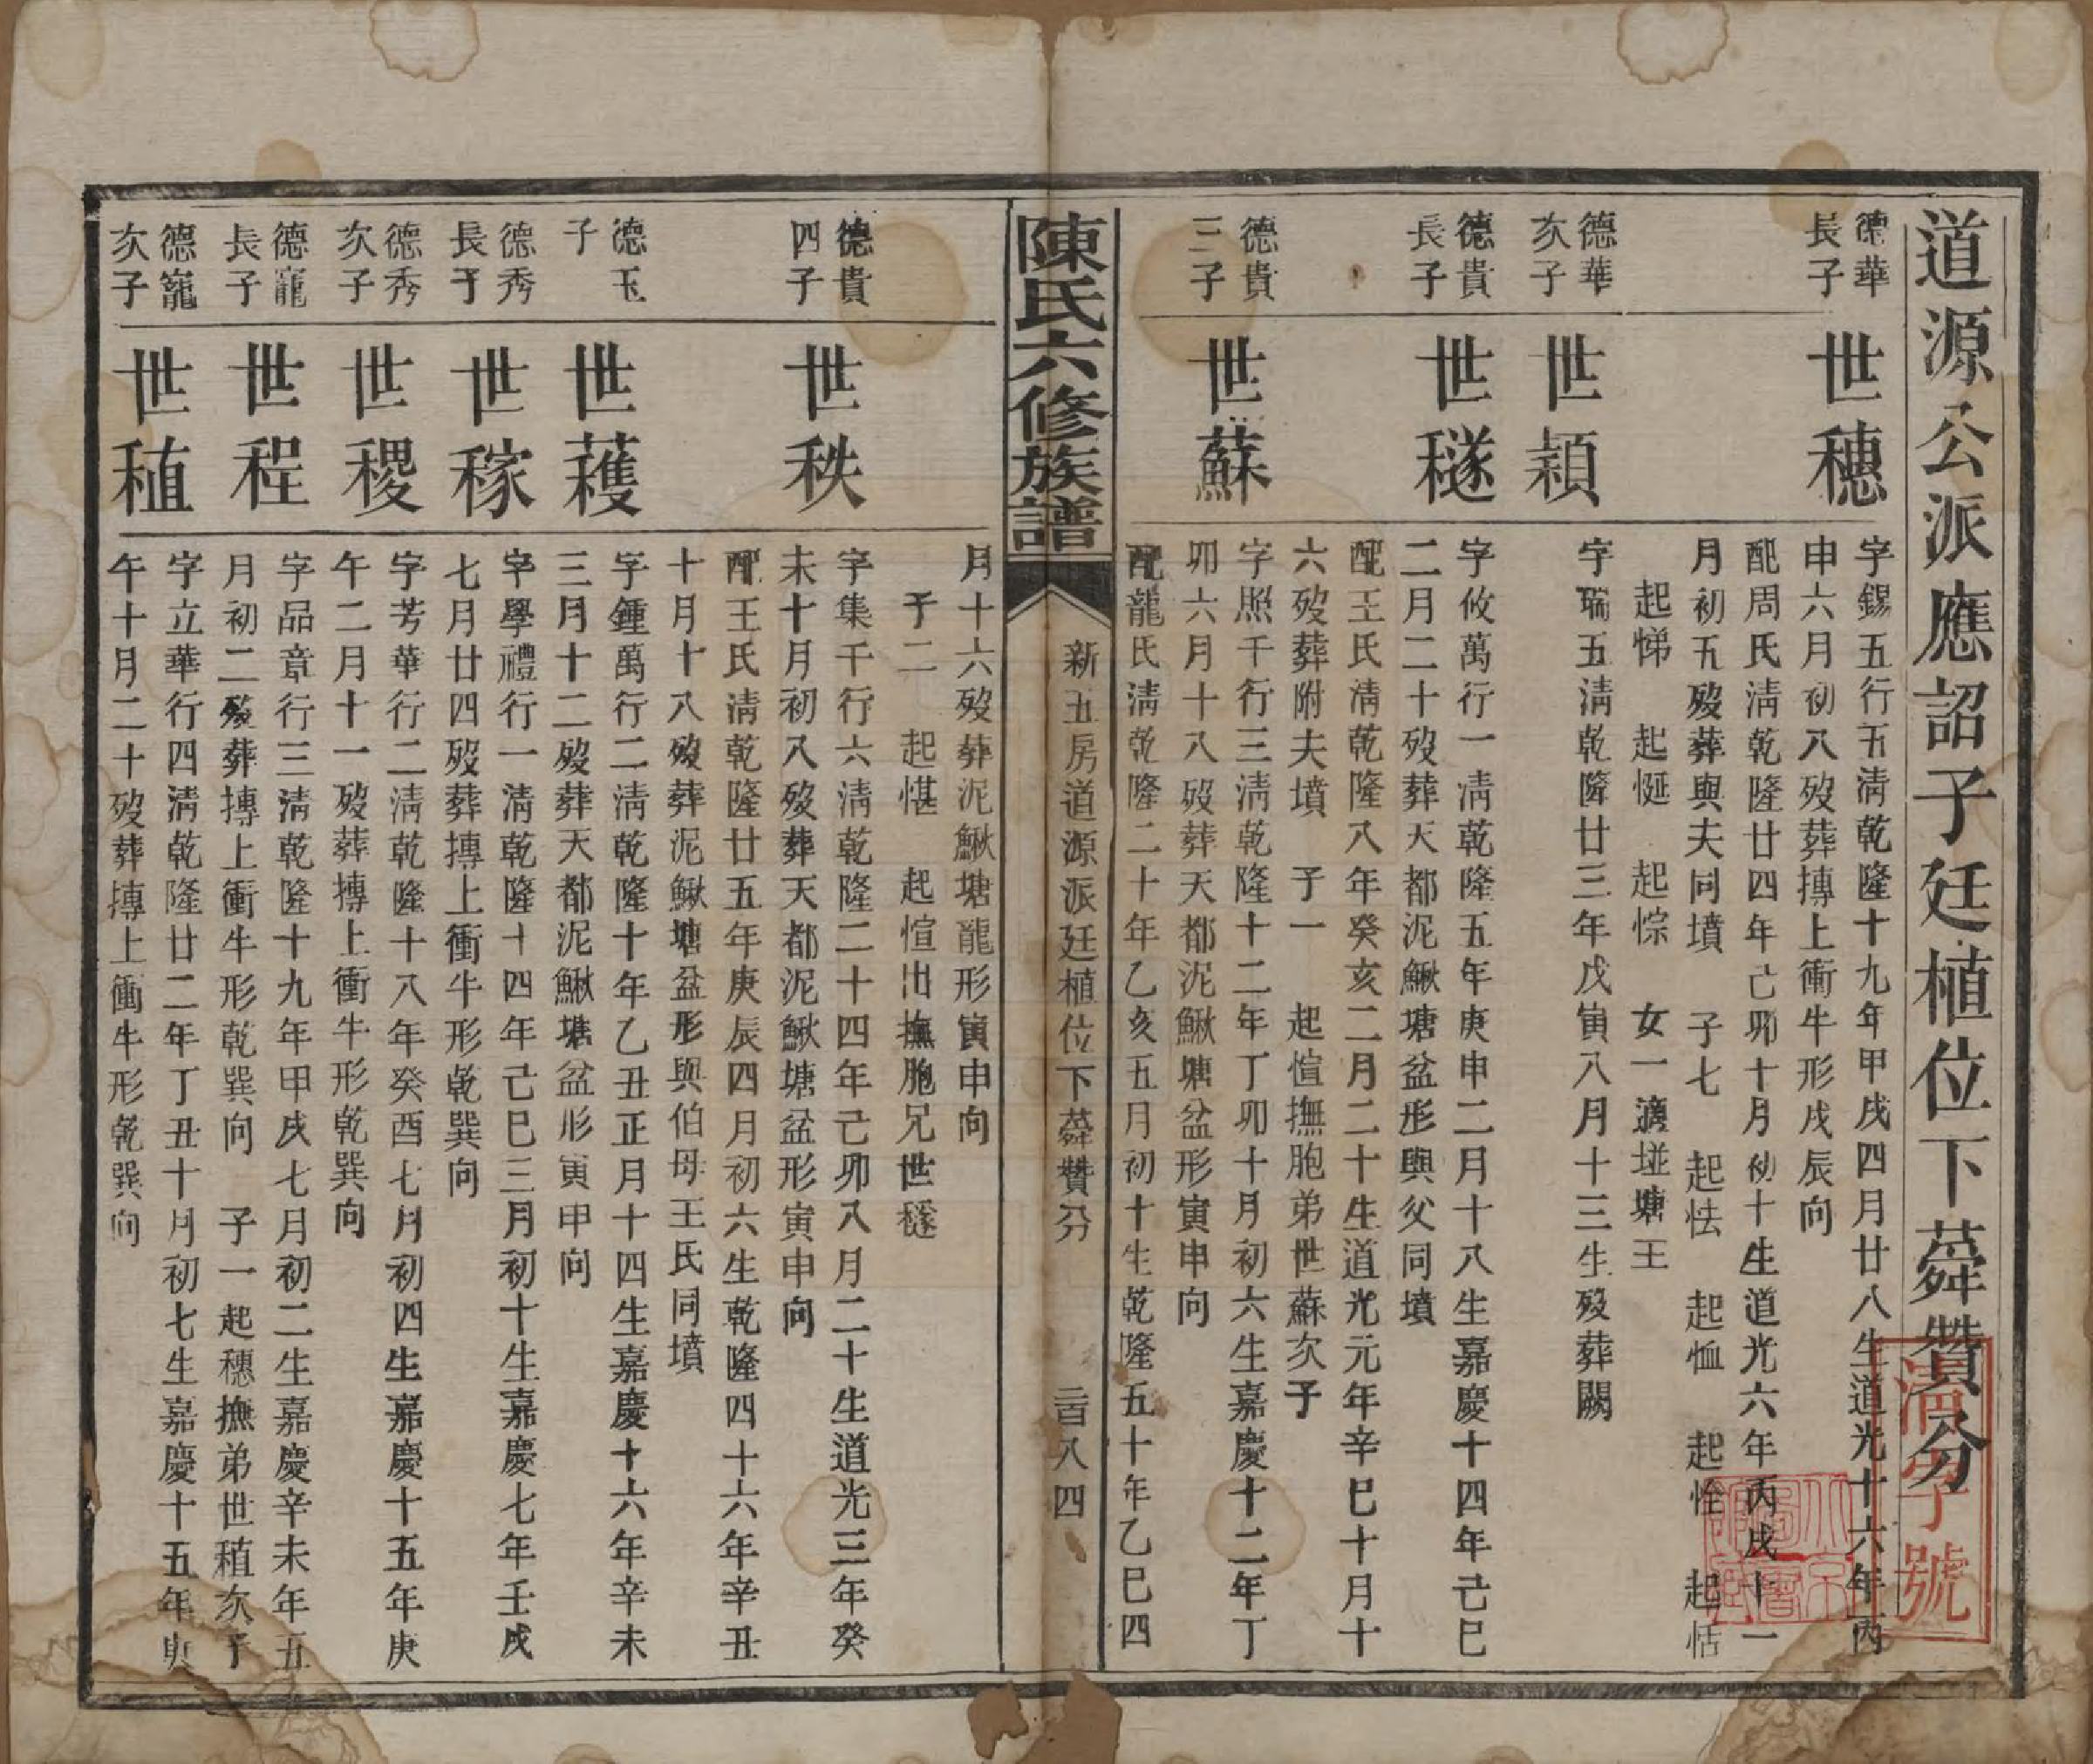 道源公派應詔子廷植位下蕣贊分
德華長子
世穗
字錫五行五淸乾隆十九年甲戌四月廿八生道光十六年丙
申六月初八歿葬摶上衝牛形戌辰向
配周氏淸乾隆廿四年己卯十月初十生道光六年丙戌十一
月初五歿葬與夫同墳 子七 起怯 起恤 起恮 起恬
起悌 起㤿 起悰 女一適塳塘王
德華次子
世穎
字瑞五淸乾隆廿三年戊寅八月十三生歿葬闕
德貴長子
世穟
字攸萬行一淸乾隆五年庚申二月十八生嘉慶十四年己巳
二月二十歿葬天都泥鰍塘盆形與父同墳
配王氏淸乾隆八年癸亥二月二十生道光元年辛巳十月十
六歿葬附夫墳 子一 起愃撫胞弟世蘇次子
德貴三子
世蘇
字照千行三淸乾隆十二年丁卯十月初六生嘉慶十二年丁
卯六月十八歿葬天都泥鰍塘盆形寅申向
配龍氏淸乾隆二十年乙亥五月初十生乾隆五十年乙巳四
陳氏六修族譜
新五房道源派廷植位下蕣贊分
二百八四
月十六歿葬泥鰍塘龍形寅申向
子二 起愖 起愃出撫胞兄世穟
德貴四子
世秩
字集千行六淸乾隆二十四年己卯八月二十生道光三年癸
未十月初八歿葬天都泥鰍塘盆形寅申向
配王氏淸乾隆廿五年庚辰四月初六生乾隆四十六年辛丑
十月十八歿葬泥鰍塘盆形與伯母王氏同墳
德玉子
世蒦
字鍾萬行二淸乾隆十年乙丑正月十四生嘉慶十六年辛未
三月十二歿葬天都泥鰍塘盆形寅甲向
德秀長子
世稼
字學禮行一淸乾隆十四年己巳三月初十生嘉慶七年壬戌
七月廿四歿葬摶上衝牛形乾巽向
德秀次子
世稷
字芳華行二淸乾隆十八年癸酉七月初四生嘉慶十五年庚
午二月十一歿葬摶上衝牛形乾巽向
德寵長子
世程
字品章行三淸乾隆十九年甲戌七月初二生嘉慶辛未年五
月初二歿葬摶上衝牛形乾巽向 子一起穗撫弟世稙次子
德寵次子
世稙
字立華行四淸乾隆廿二年丁丑十月初七生嘉慶十五年庚
午十月二十歿葬摶上衝牛形乾巽向